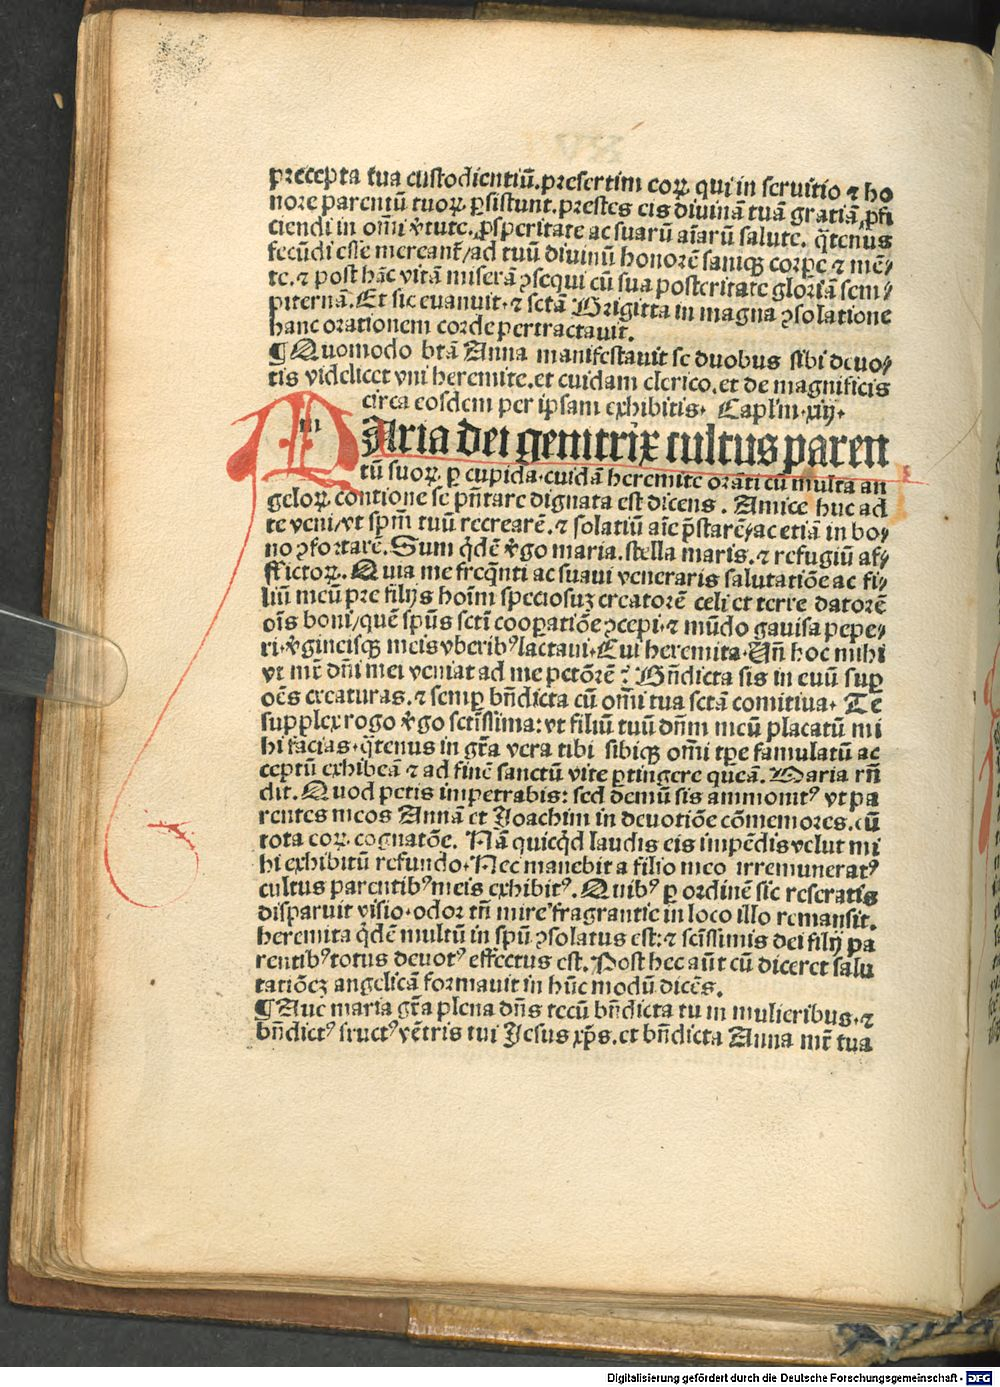 precepta tua custodientiū. presertim coꝝ. qui in seruitio ⁊ ho
nore parentū tuoꝝ. ꝑsistunt. prestes eis diuinā tuā gratiā, ꝓfi
ciendi in om̄i v̾tute. ꝓsperitate ac suarū aīarū salute. q̄tenus
fecūdi esse mereant᷑/ad tuū diuinū honorē saniqꝫ corꝑe ⁊ mē⸗
te. ⁊ post hāc vitā miserā ꝯsequi cū sua posteritate gloriā sem⸗
piternā. Et sic euanuit. ⁊ sctā Brigitta in magna ꝯsolatione
hanc orationem corde pertractauit.
¶ Quomodo btā Anna manifestauit se duobus sibi deuo⸗
tis videlicet vni heremite. et cuidam clerico. et de magnificis
circa eosdem per ipsam exhibitis. Capl'm. xiij.
m
MAria dei genitrix cultus paren
tū suoꝝ. ꝑ cupida. cuidā heremite orāti cū multa an
geloꝝ. contione se pn̄tare dignata est dicens. Amice huc ad
te veni/vt spm̄ tuū recrearē. ⁊ solatiū aīe p̄starē/ac etiā in bo⸗
no ꝯfortarē. Sum q̇dē v̾go maria. stella maris. ⁊ refugiū af⸗
flictoꝝ. Quia me freq̄nti ac suaui veneraris salutatiōe ac fi⸗
liū meū pre filijs hoīm speciosuꝫ creatorē celi et terre datorē
oīs boni/quē spūs sctī cooꝑatiōe ꝯcepi. ⁊ mūdo gauisa pepe⸗
ri. v̾gineisqꝫ meis vberibꝰ lactaui. Cui heremita. Un̄ hoc mihi
vt mr̄ dn̄i mei veniat ad me petōrē? Bn̄dicta sis in euū suꝑ
oēs creaturas. ⁊ semꝑ bn̄dicta cū om̄i tua sctā comitiua. Te
supplex rogo v̾go sctīssima: vt filiū tuū dn̄m meū placatū mi
hi facias. q̄tenus in gr̄a vera tibi sibiqꝫ om̄i tꝑe famulatū ac
ceptū exhibeā ⁊ ad finē sanctū vite ꝑtingere queā. Maria rn̄
dit. Quod petis impetrabis: sed demū sis ammonitꝰ vt pa
rentes meos Annā et Ioachim in deuotiōe cōmemores. cū
tota coꝝ. cognatōe. Nā quicq̇d laudis eis impēdis velut mi
hi exhibitū refundo. Nec manebit a filio meo irremuneratꝰ
cultus parentibꝰ meis exhibitꝰ. Quibꝰ ꝑ ordinē sic reseratis
disparuit visio. odor tn̄ mire fragrantie in loco illo remansit.
heremita q̇dē multū in spū ꝯsolatus est: ⁊ scīssimis dei filij pa
rentibꝰ totus deuotꝰ effectus est. Post hec aūt cū diceret salu
tatiōeꝫ angelicā formauit in hūc modū dicēs.
¶ Aue maria gr̄a plena dn̄s tecū bn̄dicta tu in mulieribus. ⁊
bn̄dictꝰ fructꝰ vētris tui Jesus xp̄s. et bn̄dicta Anna mr̄ tua
Digitalisierung gefördert durch die Deutsche Forschungsgemeinschaft - DFG